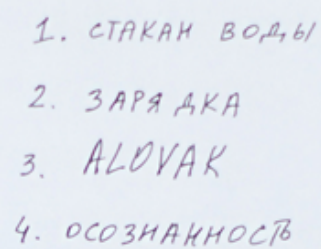 1. СТАКАН ВОДЫ
2. ЗАРЯДКА
3. ALOVAK
4. ОСОЗНАННОСТЬ